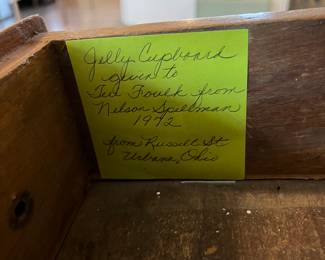 Jelly Cupboard
given to
Foulk from
Nelson Spellman
1972
from Russell St
Urbana, Ohio